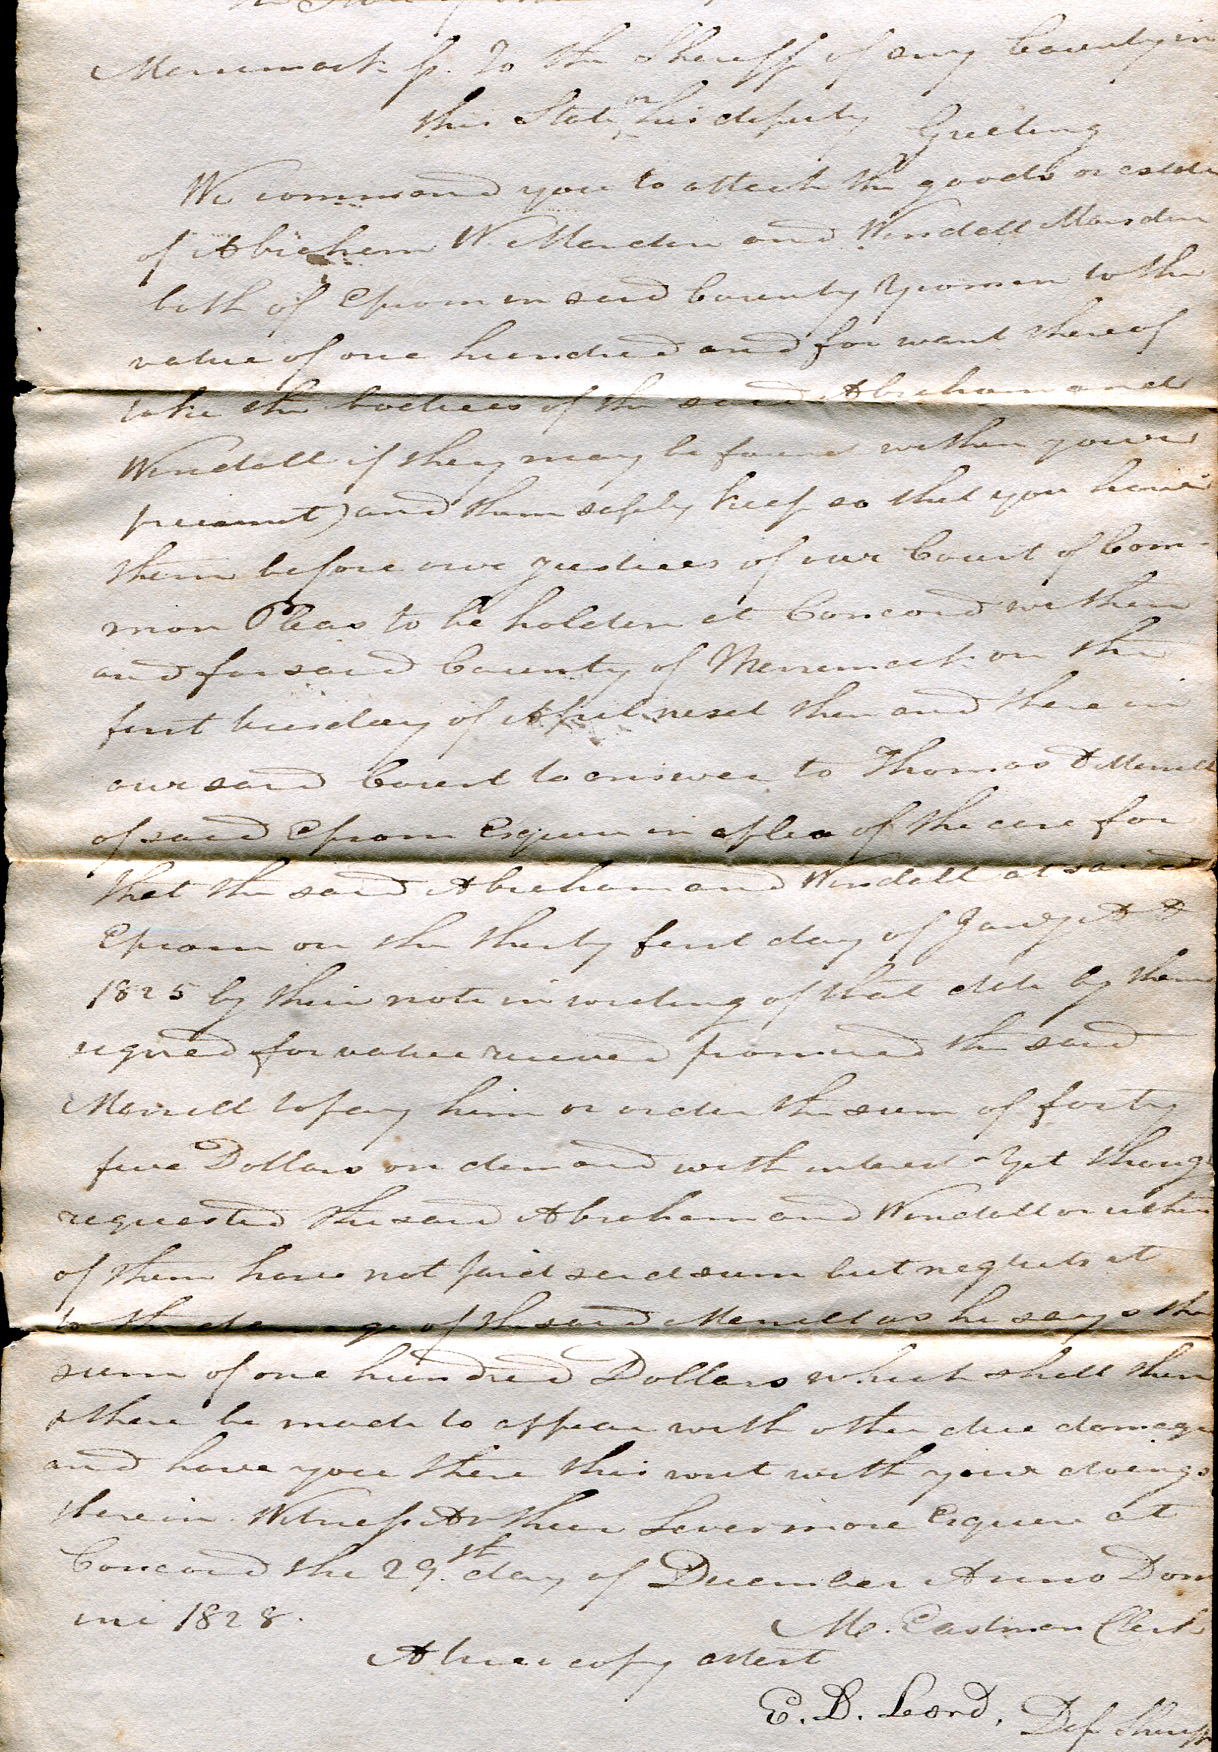 The State of
Merrimack ss. To the Sheriff of any County in
this State or his deputy Greeting
We command you to attach the goods or estate
of Abraham W. Marden and Windall Marsden
both of Epsom in said County Yeomen to the
value of one hundred and for want thereof
take the bodies of the said Abraham and
Windall if they may be found within your
precinct) and them safely keep so that you have
them before our Justices of our Court of Com-
mon Pleas to be holden at Concord within
and for said County of Merrimack on the
first tuesday of April next then and there in
our said Court to answer to Thomas D Merrill
of said Epsom Esquire in a plea of the case for
that the said Abraham and Windall at said
Epsom on the thirty first day of Jany A D
1825 by their note in writing of that date by them
signed for value received promised the said
Merrill to pay him or order the sum of forty
five Dollars on demand with interest - Yet though
requested the said Abraham and Windall or either
of them have not paid said sum but neglects it
to the damage of the said Merrill as he says the
sum of one hundred Dollars which shall then
& there be made to appear with other due damages
and have you there this writ with your doings
therein. Witness Arthur Livermore Esquire at
Concord the 29th day of December Anno Dom
ini 1828.
M. Eastman Clerk
A true copy attest
E. D. Lord, Dep Sheriff